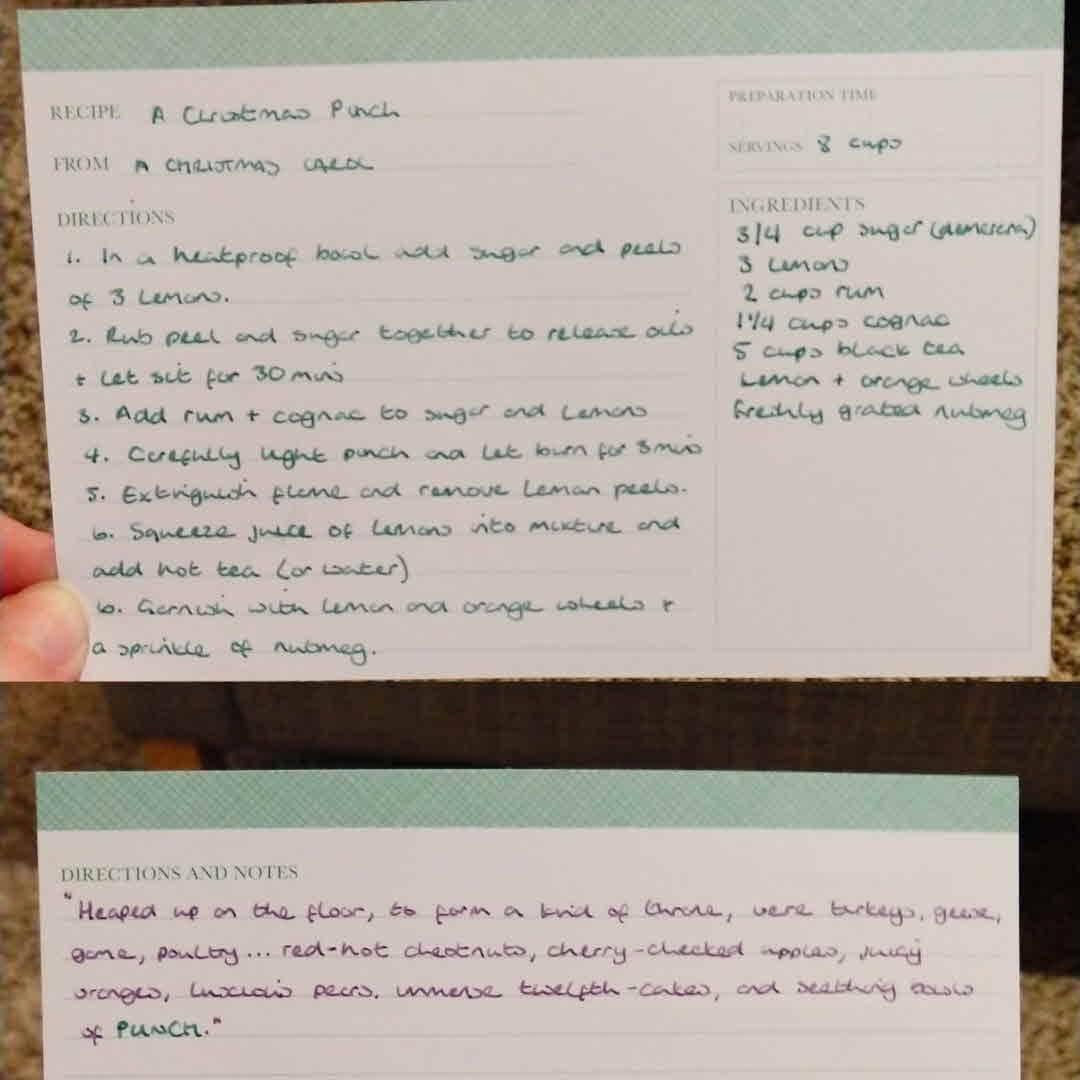 RECIPE A Christmas Punch
FROM A CHRISTMAS CAROL
DIRECTIONS
1. In a heatproof bowl add sugar and peels
of 3 Lemons.
2. Rub peel and sugar together to release oils
+ let sit for 30 mins
3. Add rum + cognac to sugar and Lemons
4. Carefully light punch and let burn for 3 mins
5. Extinguish flame and remove Lemon peels.
6. Squeeze juice of Lemons into mixture and
add hot tea (or water)
6. Garnish with lemon and orange wheels +
a sprinkle of nutmeg.
PREPARATION TIME
SERVINGS 8 cups
INGREDIENTS
3/4 cup sugar (demerera)
3 Lemons
2 cups rum
1 1/4 cups cognac
5 cups black tea
Lemon + orange wheels
freshly grated nutmeg
DIRECTIONS AND NOTES
"Heaped up on the floor, to form a kind of throne, were turkeys, geese,
game, poultry... red-hot chestnuts, cherry-cheeked apples, juicy
oranges, luscious pears, immense twelfth-cakes, and seething bowls
of PUNCH."